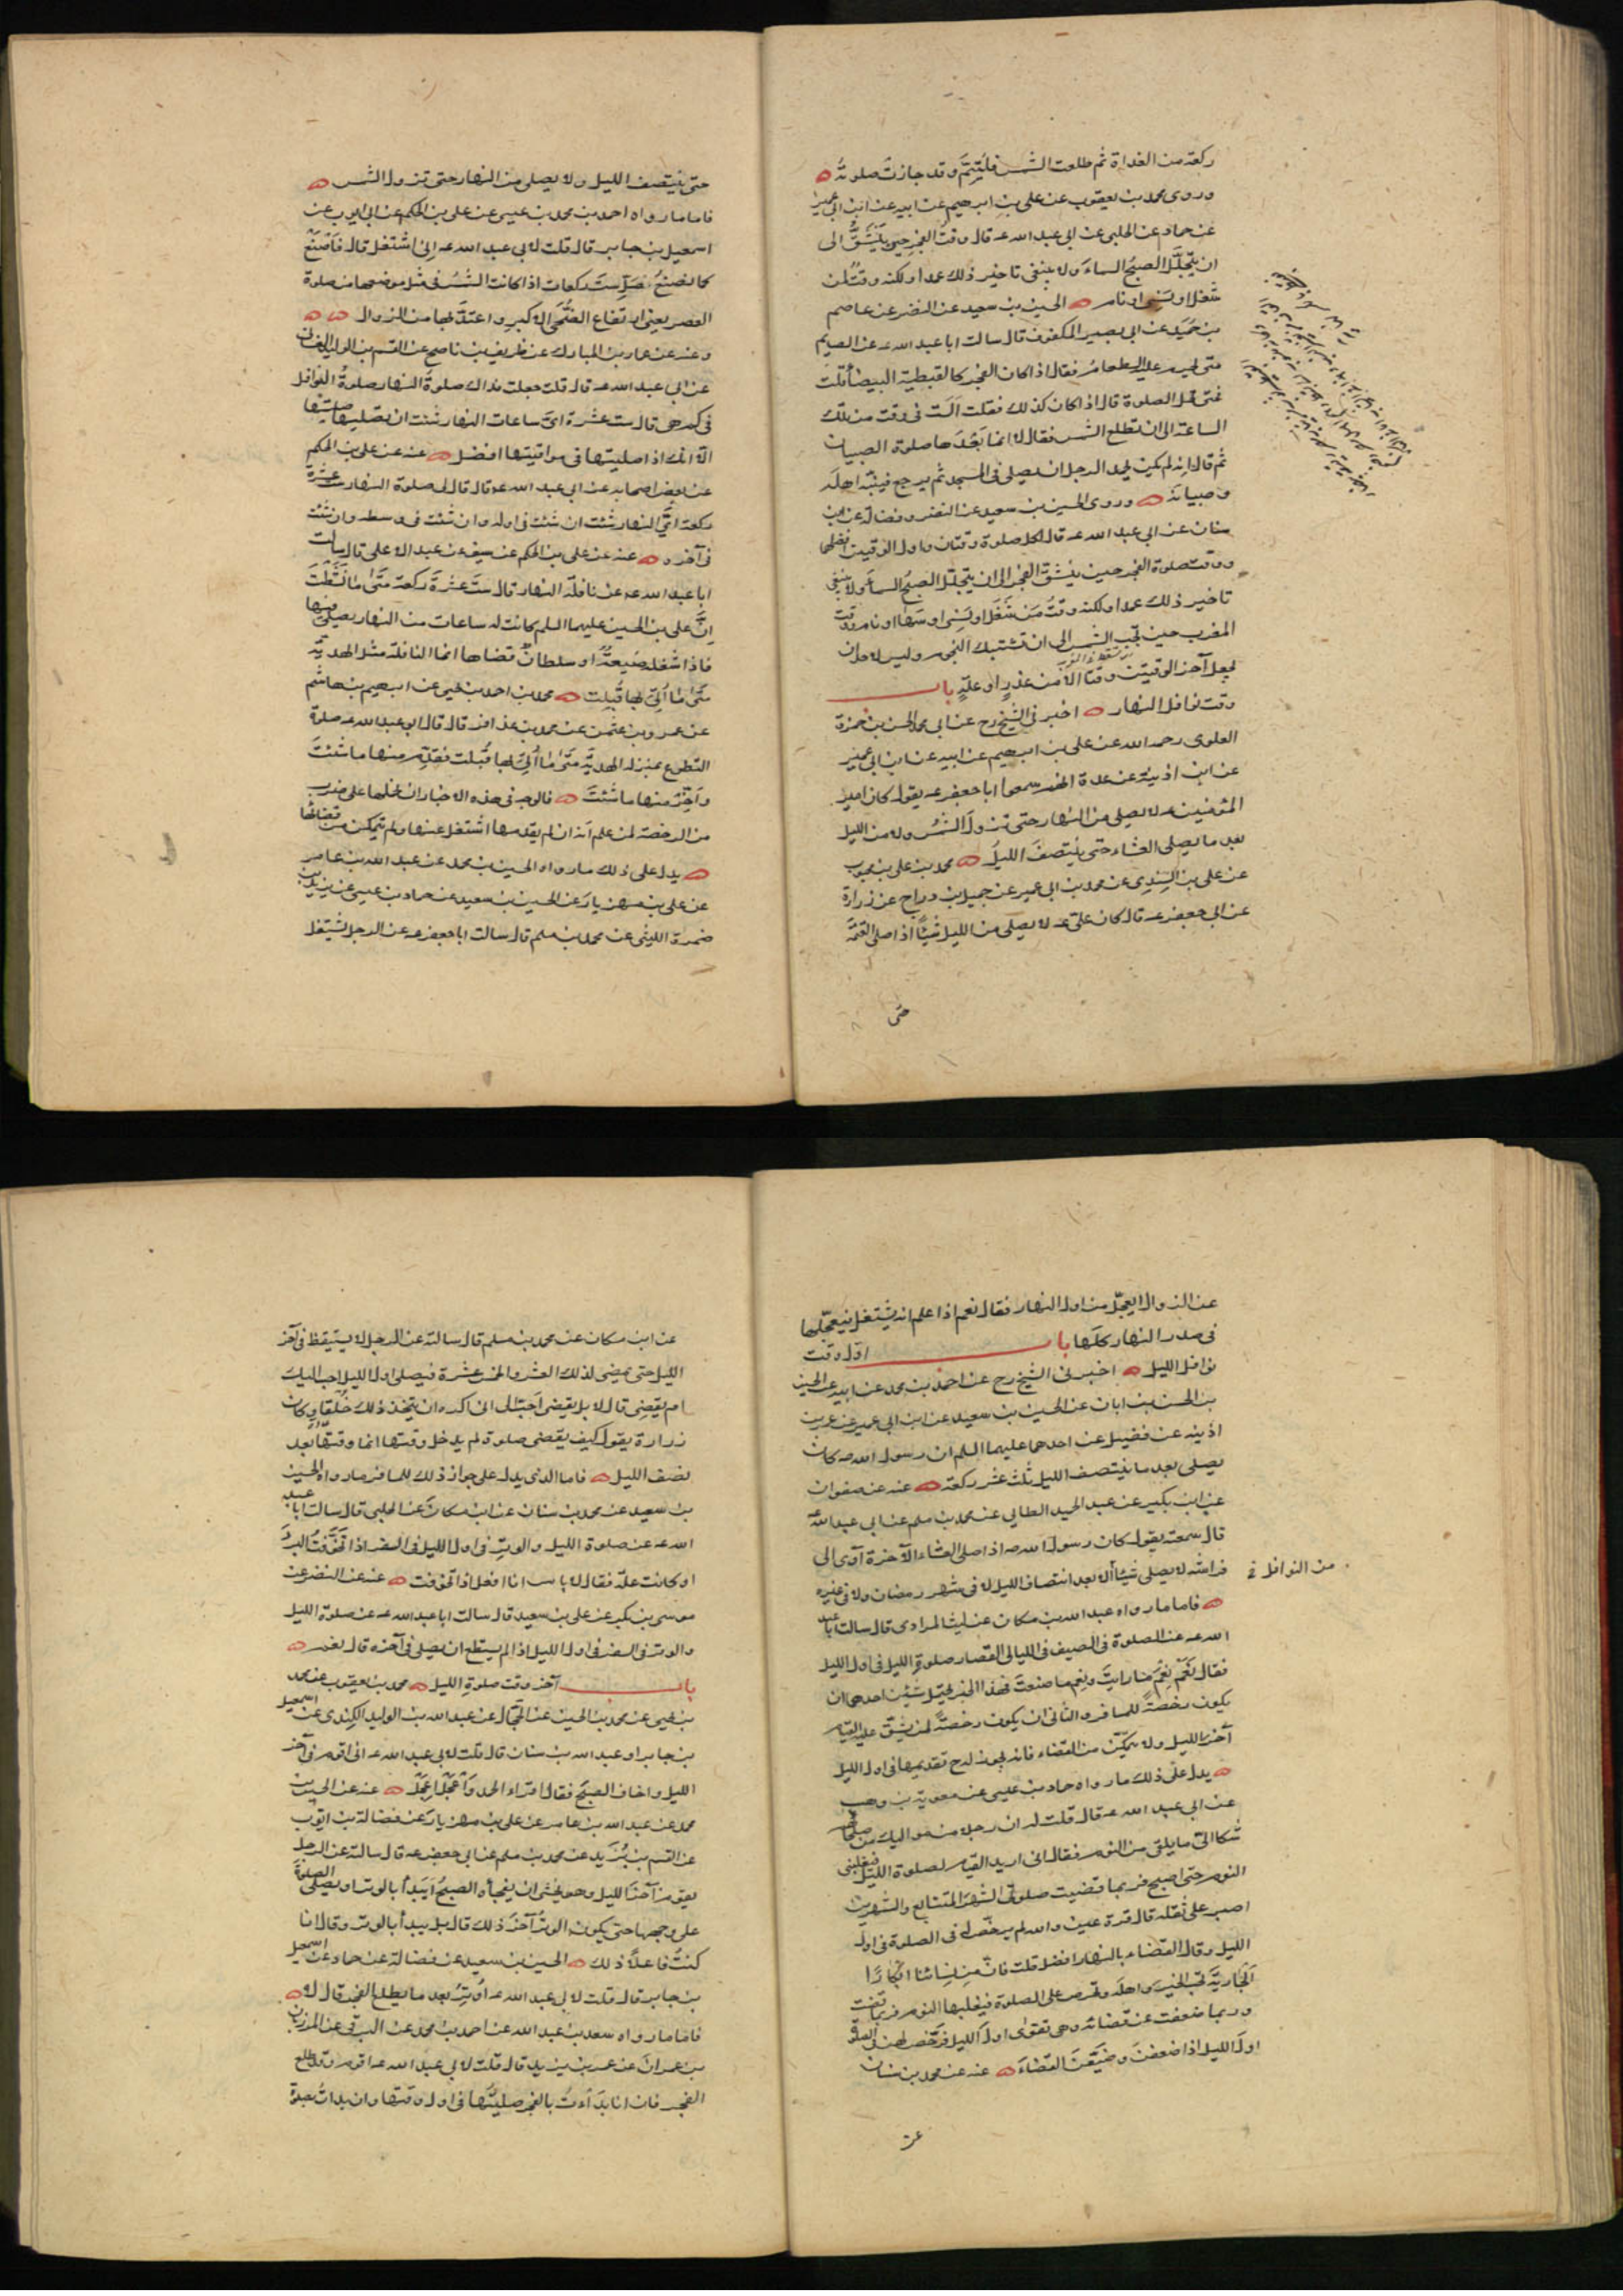 ركعة من الغداة ثم طلعت الشمس فليتمّ وقد جازت صلوته
وروى محمد بن يعقوب عن على بن ابرهيم عن ابيه عن ابن ابى عمير
عن حماد عن الحلبى عن ابى عبد الله عه قال وقت الفجر حين ينشقّ الى
ان يتجلّل الصبح السماء ولا ينبغى تاخير ذلك عمدا ولكنه وقت لمن
شغل او نسى او نام الحسين بن سعيد عن النضر عن عاصم
بن حميد عن ابى بصير المكفوف قال سالت ابا عبد الله عه عن الصيم
متى يحرم عليه الطعام فقال اذا كان الفجر كالقبطية البيضاء قلت
فمتى تحل الصلوة قال اذا كان كذلك فقلت الست فى وقت من تلك
الساعة الى ان تطلع الشمس فقال لا انما نعدها صلوة الصبيان
ثم قال انه لم يكن يحمد الرجل ان يصلى فى المسجد ثم يرجع فينبّه اهله
وصبيانه وروى الحسين بن سعيد عن النضر وفضالة عن ابن
سنان عن ابى عبد الله عه قال لكل صلوة وقتان واول الوقتين افضلهما
ووقت صلوة الفجر حين ينشقّ الفجر الى ان يتجلّل الصبح السماء ولا ينبغى
تاخير ذلك عمدا ولكنه وقت من شغل او نسى او سها او نام ووقت
المغرب حين تجب الشمس الى ان تشتبك النجوم وليس لاحد ان
يجعل آخر الوقتين وقتا الا من عذر او علّة باب
وقت نوافل النهار اخبرنى الشيخ رح عن ابى محمد الحسن بن حمزة
العلوى رحمه الله عن على بن ابرهيم عن ابيه عن ابن ابى عمير
عن ابن اذينة عن عدة انهم سمعوا ابا جعفر عه يقول كان امير
المؤمنين عه لا يصلى من النهار حتى تزول الشمس ولا من الليل
بعد ما يصلى العشاء حتى ينتصف الليل محمد بن على بن محبوب
عن على بن السندى عن محمد بن ابى عمير عن جميل بن دراج عن زرارة
عن ابى جعفر عه قال كان علىّ عه لا يصلى من الليل شيئا اذا صلى العتمة
حتى
حتى ينتصف الليل ولا يصلى من النهار حتى تزول الشمس
فاما ما رواه احمد بن محمد بن عيسى عن على بن الحكم عن ابى ايوب عن
اسمعيل بن جابر قال قلت لابى عبد الله عه انى اشتغل قال فاصنع
كما نصنع صلّ ستّ ركعات اذا كانت الشمس فى مثل موضعها من صلوة
العصر يعنى ارتفاع الضحى الاكبر واعتدّ بها من الزوال
وعنه عن عمار بن المبارك عن ظريف بن ناصح عن القسم بن الوليد الغفارى
عن ابى عبد الله عه قال قلت جعلت فداك صلوة النهار صلوة النوافل
فى كم هى قال ست عشرة اىّ ساعات النهار شئت ان تصليها صليتها
الا انك اذا صليتها فى مواقيتها افضل عنه عن على بن الحكم
عن بعض اصحابه عن ابى عبد الله عه قال قال لى صلوة النهار ست عشرة
ركعة اىّ النهار شئت ان شئت فى اوله وان شئت فى وسطه وان شئت
فى آخره عنه عن على بن الحكم عن سيف عن عبد الاعلى قال سالت
ابا عبد الله عه عن نافلة النهار قال ستّ عشرة ركعة متى ما نشطت
انّ على بن الحسين عليهما السلم كانت له ساعات من النهار يصلى فيها
فاذا شغله ضيعة او سلطان قضاها انما النافلة مثل الهدية
متى ما اتى بها قبلت محمد بن احمد بن يحيى عن ابرهيم بن هاشم
عن عمرو بن عثمن عن محمد بن عذافر قال قال ابو عبد الله عه صلوة
التطوع بمنزلة الهديّة متى ما اتى بها قبلت فقدّم منها ما شئت
واخّر منها ما شئت فالوجه فى هذه الاخبار ان نحملها على ضرب
من الرخصة لمن علم انه ان لم يقدمها اشتغل عنها ولم يتمكن من قضائها
يدل على ذلك ما رواه الحسين بن محمد عن عبد الله بن عامر
عن على بن مهزيار عن الحسين بن سعيد عن حماد بن عيسى عن يزيد بن
ضمرة الليثى عن محمد بن مسلم قال سالت ابا جعفر عه عن الرجل يشتغل
عن الزوال ايعجّل من اول النهار فقال نعم اذا علم انه يشتغل فيعجّلها
فى صدر النهار كلها باب اول وقت
نوافل الليل اخبرنى الشيخ رح عن احمد بن محمد عن ابيه عن الحسين
بن الحسن بن ابان عن الحسين بن سعيد عن ابن ابى عمير عن عمر بن
اذينه عن فضيل عن احدهما عليهما السلم ان رسول الله صه كان
يصلى بعد ما ينتصف الليل ثلث عشر ركعة عنه عن صفوان
عن ابن بكير عن عبد الحميد الطائى عن محمد بن مسلم عن ابى عبد الله
قال سمعته يقول كان رسول الله صه اذا صلى العشاء الآخرة آوى الى
فراشه لا يصلى شيئا الا بعد انتصاف الليل لا فى شهر رمضان ولا فى غيره
من النوافل
فاما ما رواه عبد الله بن مسكان عن ليث المرادى قال سالت ابا عبد
الله عه عن الصلوة فى الصيف فى الليالى القصار صلوة الليل فى اول الليل
فقال نعم نعم ما رايت ونعم ما صنعت فهذا الخبر يحتمل شيئين احدهما ان
يكون رخصة للمسافر والثانى ان يكون رخصة لمن يشقّ عليه القيام
آخر الليل ولا يتمكّن من القضاء فانه يجوز له ح تقديمها فى اول الليل
يدل على ذلك ما رواه حماد بن عيسى عن معوية بن وهب
عن ابى عبد الله عه قال قلت له ان رجلا من مواليك من صلحائهم
شكا الىّ ما يلقى من النوم فقال انى اريد القيام لصلوة الليل فيغلبنى
النوم حتى اصبح فربما قضيت صلوتى الشهر المتتابع والشهرين
اصبر على ثقله قال قرة عين والله لم يرخّص له فى الصلوة فى اول
الليل وقال القضاء بالنهار افضل قلت فانّ من نسائنا ابكارا
الجارية تحب الخير واهله وتحرص على الصلوة فيغلبها النوم فربما قضت
وربما ضعفت عن قضائه وهى تقوى اول الليل فرخّص لهن فى الصلوة
اول الليل اذا ضعفن وضيّعن القضاء عنه عن محمد بن سنان
عن
عن ابن مسكان عن محمد بن مسلم قال سالته عن الرجل لا يستيقظ فى آخر
الليل حتى يمضى لذلك العشر والخمس عشرة فيصلى اول الليل احب اليك
ام يقضى قال لا بل يقضى احبّ الى انى اكره ان يتخذ ذلك خلقا وكان
زرارة يقول كيف يقضى صلوة لم يدخل وقتها انما وقتها بعد
نصف الليل فاما الذى يدل على جواز ذلك للمسافر ما رواه الحسين
بن سعيد عن محمد بن سنان عن ابن مسكان عن الحلبى قال سالت ابا عبد
الله عه عن صلوة الليل والوتر فى اول الليل فى السفر اذا تخوّفت البرد
او كانت علّة فقال لا باس انا افعل اذا تخوفت عنه عن النضر عن
موسى بن بكير عن على بن سعيد قال سالت ابا عبد الله عه عن صلوة الليل
والوتر فى السفر فى اول الليل اذا لم يستطع ان يصلى فى آخره قال نعم
باب آخر وقت صلوة الليل محمد بن يعقوب عن محمد
بن يحيى عن محمد بن الحسين عن الحجّال عن عبد الله بن الوليد الكندى عن اسمعيل
بن جابر او عبد الله بن سنان قال قلت لابى عبد الله عه انى اقوم فى آخر
الليل واخاف الصبح فقال اقراء الحمد واعجل اعجل عنه عن الحسين بن
محمد عن عبد الله بن عامر عن على بن مهزيار عن فضالة بن ايوب
عن القسم بن بريد عن محمد بن مسلم عن ابى جعفر عه قال سالته عن الرجل
يقوم من آخر الليل وهو يخشى ان يفجأه الصبح ايبدأ بالوتر او يصلى الصلوة
على وجهها حتى يكون الوتر آخر ذلك قال بل يبدأ بالوتر وقال انا
كنت فاعلا ذلك الحسين بن سعيد عن فضالة عن حماد عن اسمعيل
بن جابر قال قلت لابى عبد الله عه اوتر بعد ما يطلع الفجر قال لا
فاما ما رواه سعد بن عبد الله عن احمد بن محمد عن البرقى عن المرزبان
بن عمران عن عمر بن يزيد قال قلت لابى عبد الله عه اقوم وقد طلع
الفجر فان انا بدأت بالفجر صليتها فى اول وقتها وان بدات بصلوة